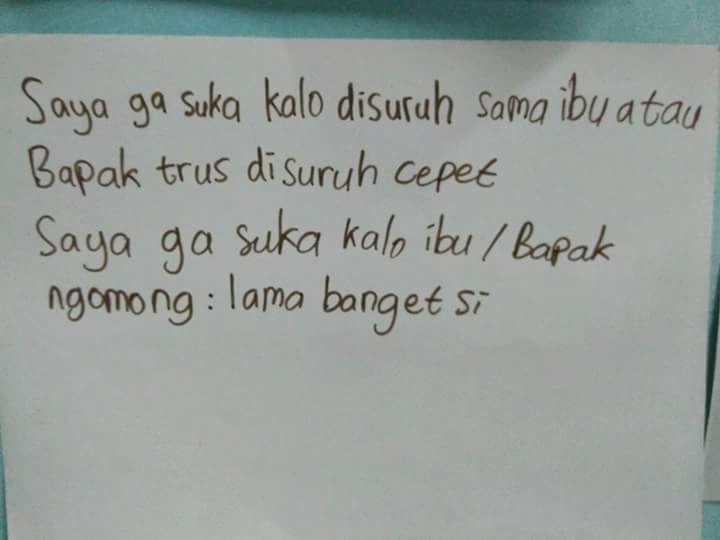 Saya ga suka kalo disuruh sama ibu atau
Bapak trus disuruh cepet
Saya ga suka kalo ibu / Bapak
ngomong : lama banget si